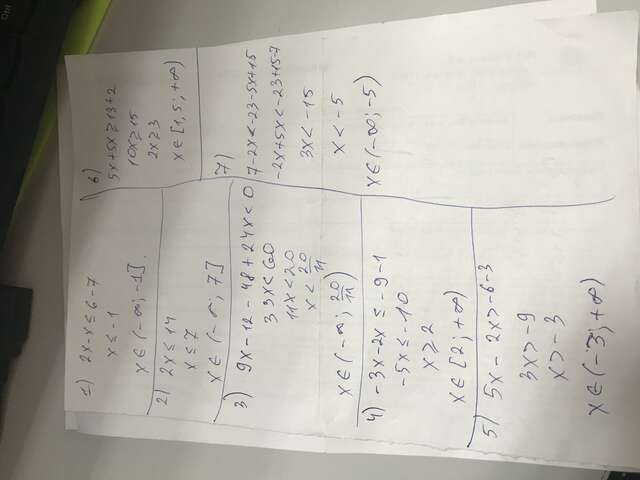 1) 2x-x≤6-7
x≤-1
x∈(-∞;-1].
2) 2x≤14
x≤7
x∈(-∞;7]
3) 9x-12-48+24x<0
33x<60
11x<20
x<20/11
x∈(-∞;20/11)
4) -3x-2x≤-9-1
-5x≤-10
x≥2
x∈[2;+∞)
5) 5x-2x>-6-3
3x>-9
x>-3
x∈(-3;+∞)
6)
5x+5x≥13+2
10x≥15
2x≥3
x∈[1,5;+∞)
7)
7-2x<-23-5x+15
-2x+5x<-23+15-7
3x<-15
x<-5
x∈(-∞;-5)